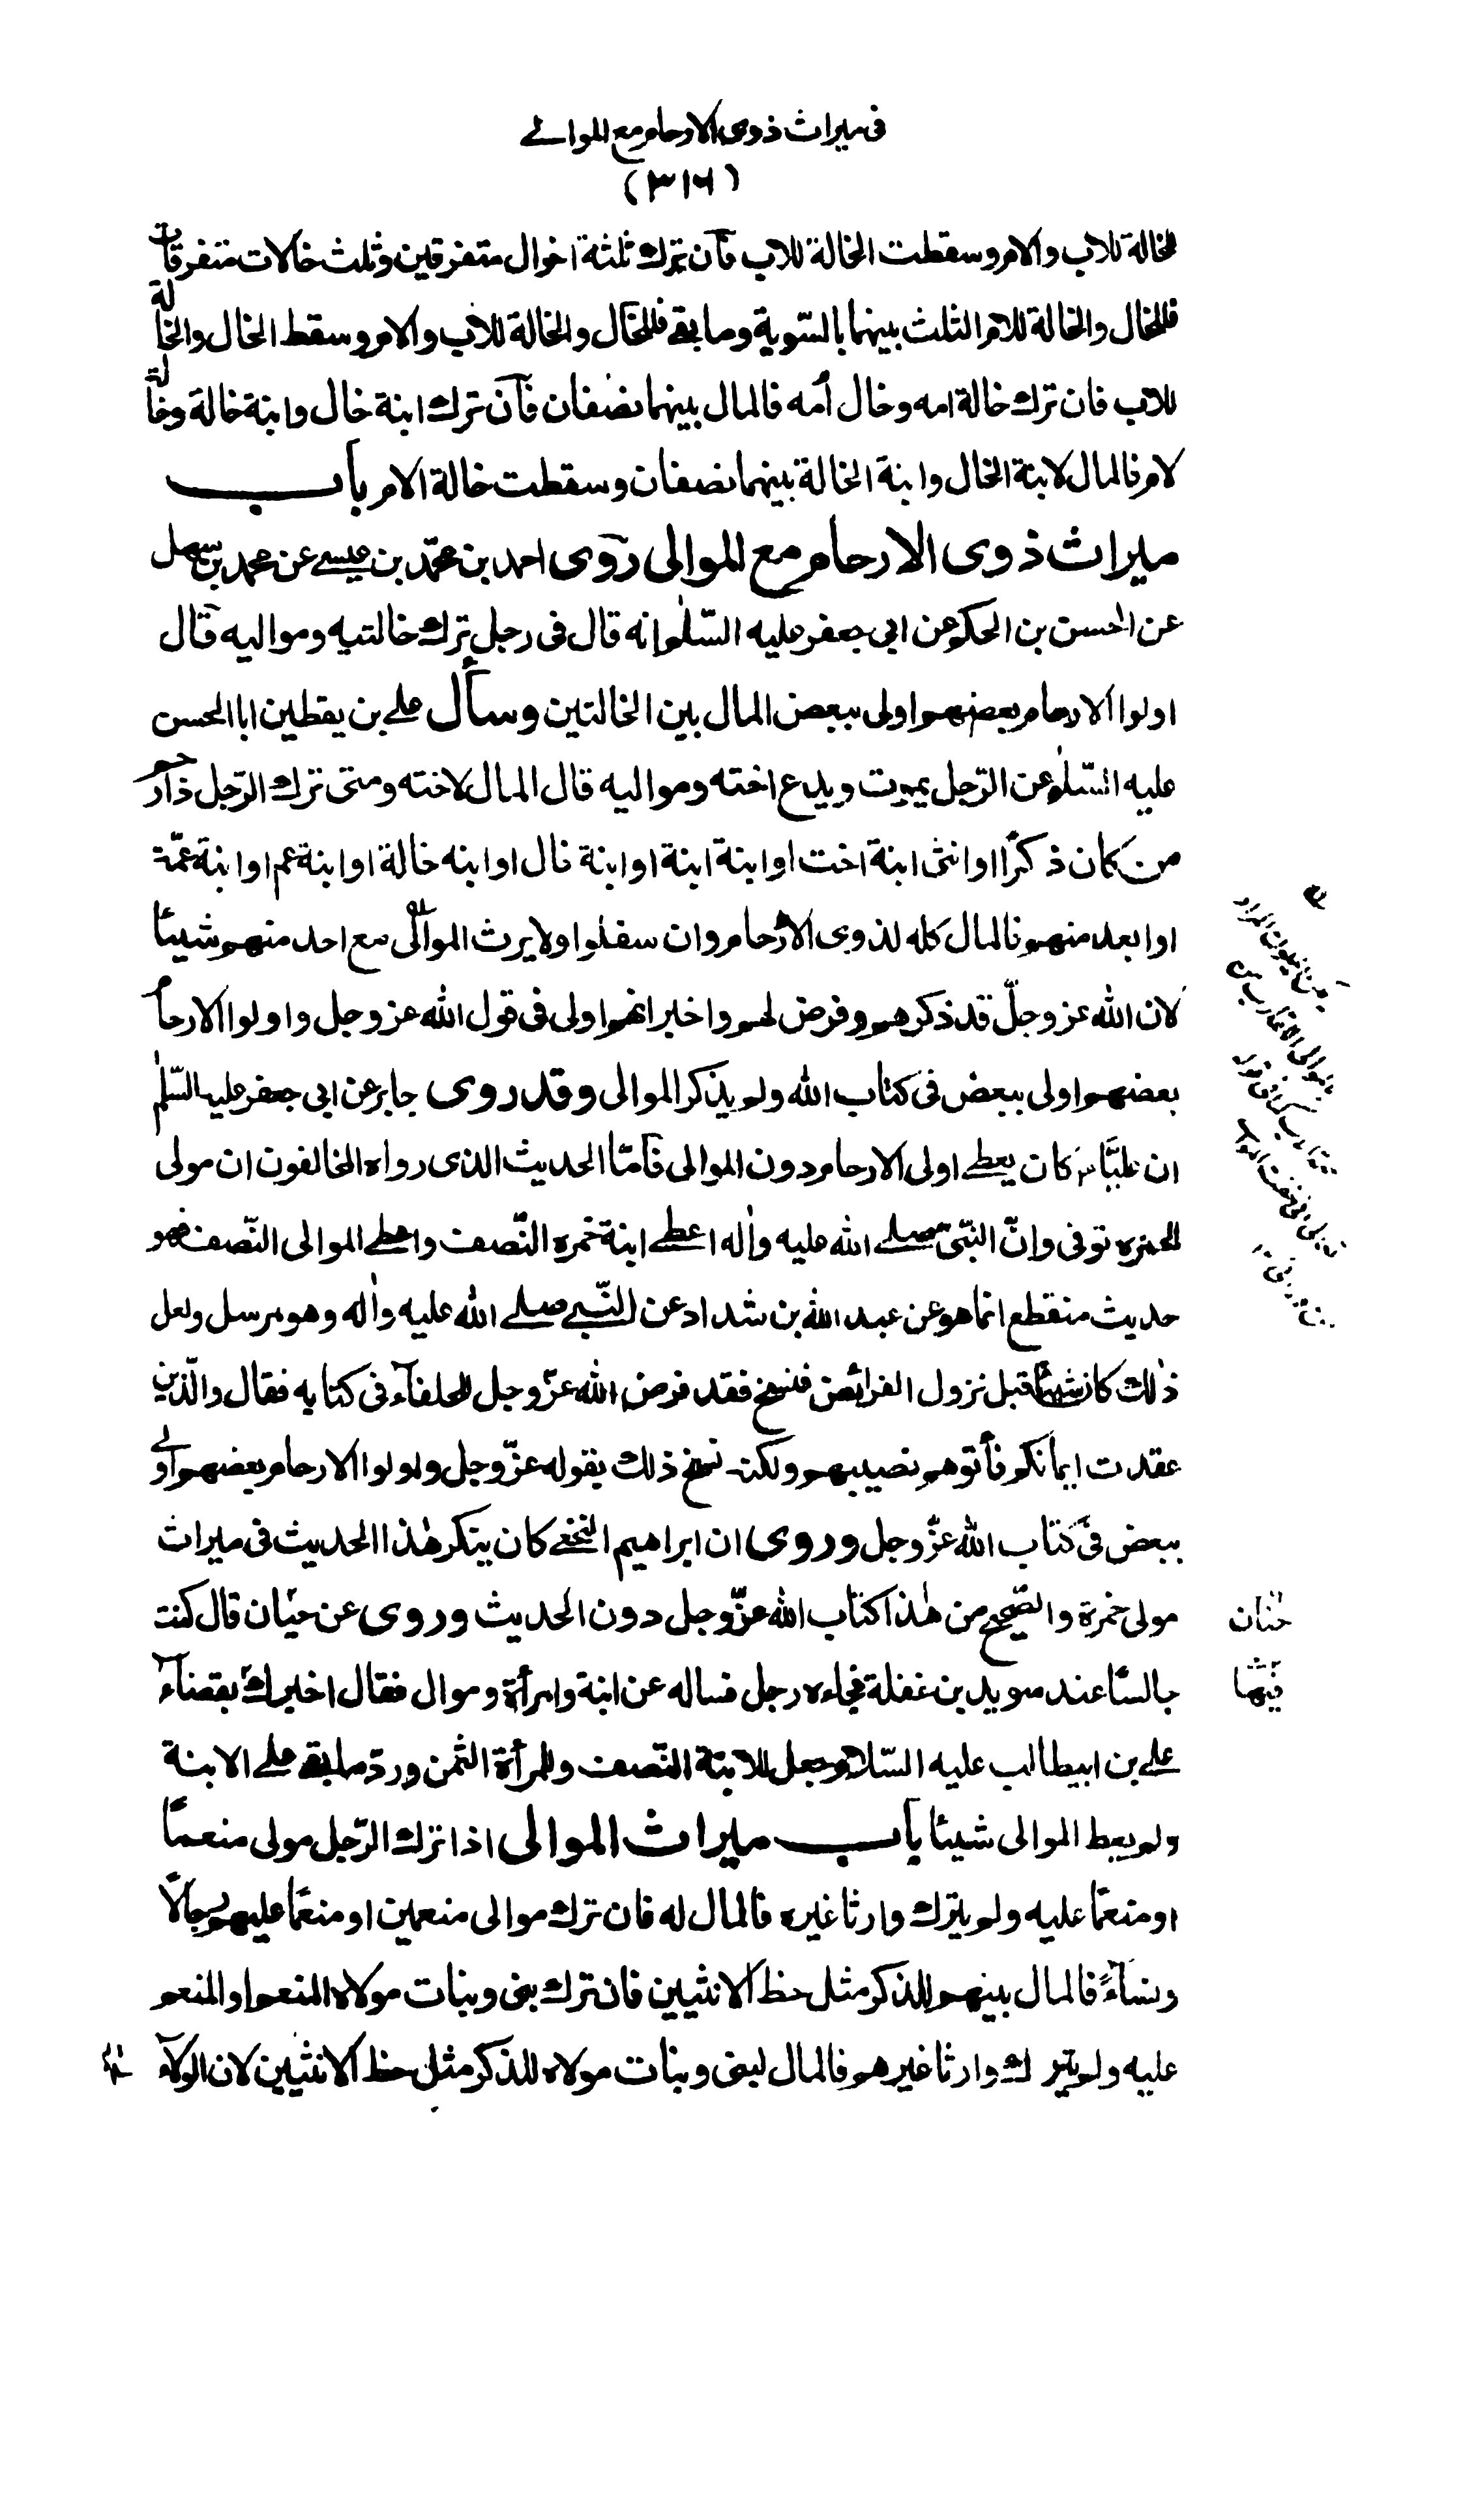 فى ميراث ذوى الارحام مع الموالى
(٣١٦)
للخالة للاب والام وسقطت الخالة للاب فآن ترك ثلثة اخوال متفرقين وثلث خالات متفرقات
فللخال والخالة للام الثلث بينهما بالسّوية وما بقى فللخال والخالة للاب والام وسقط الخال والخالة
للاب فان ترك خالة امه وخال أمه فالمال بينهما نصفان فآن ترك ابنة خال وابنة خالة وخالة
لام فالمال لابنة الخال وابنة الخالة بينهما نصفان وسقطت خالة الام باب
ميراث ذوى الارحام مع الموالى روى احمد بن محمّد بن عيسى عن محمد بن سهل
عن الحسن بن الحكم عن ابى جعفر عليه السّلم انه قال فى رجل ترك خالتيه ومواليه قال
اولوا الارحام بعضهم اولى ببعض المال بين الخالتين وسأل على بن يقطين ابا الحسن
عليه السّلم عن الرّجل يموت ويدع اخته ومواليه قال المال لاخته ومتى ترك الرّجل ذا رحم
من كان ذكرًا او انثى ابنة اخت او ابنة ابنة او ابنة خال او ابنه خالة او ابنة عم او ابنة عمّة
او ابعد منهم فالمال كله لذوى الارحام وان سفلوا ولا يرث الموالى مع احد منهم شيئًا
لان الله عز وجلّ قد ذكرهم وفرض لهم واخبر انهم اولى فى قول الله عز وجل واولوا الارحام
بعضهم اولى ببعض فى كتاب الله ولم يذكر الموالى وقد روى جابر عن ابى جعفر عليه السّلم
ان عليًّا كان يعطى اولى الارحام دون الموالى فآمّا الحديث الذى رواه المخالفون ان مولى
لحمزه توفى وانّ النبّى صلى الله عليه واٰله اعطى ابنة حمزه النّصف واعطى الموالى النّصف فهو
حديث منقطع انما هو عن عبد الله بن شداد عن النّبى صلى الله عليه واٰله وهو مرسل ولعل
ذٰلك كان شيئًا قبل نزول الفرائض فنسخ فقد فرض الله عزّ وجل للحلفآء فى كتابه فقال والّذين
عقدت ايمانكم فأتوهم نصيبهم ولكنه نسخ ذلك بقوله عزّ وجل واولوا الارحام بعضهم اولى
ببعض فى كتاب الله عزّ وجل وروى ان ابراهيم النخعى كان ينكر هٰذا الحديث فى ميراث
مولى حمزة والصّحيح من هٰذا كتاب الله عزّ وجل دون الحديث وروى عن حيان قال كنت
حنان
جالسًا عند سويد بن غفلة فجاءه رجل فساله عن ابنة وامرأة وموال فقال اخبرك بقضآء
فيها
على بن ابيطالب عليه السّلام جعل للابنة النّصف وللمرأة الثّمن وردّ ما بقى على الابنة
ولم يعط الموالى شيئا باب ميراث الموالى اذا ترك الرّجل مولى منعمًا
او منعمًا عليه ولم يترك وارثا غيره فالمال له فان ترك موالى منعمين او منعمًا عليهم رجالًا
ونسآءً فالمال بينهم للذكر مثل حظ الانثيين فان ترك بنى وبنات مولاه المنعم او المنعم
عليه ولم يترك وارثا غيرهم فالمال لبنى وبنات مولاه للذكر مثل حظ الانثيين لان الولآء